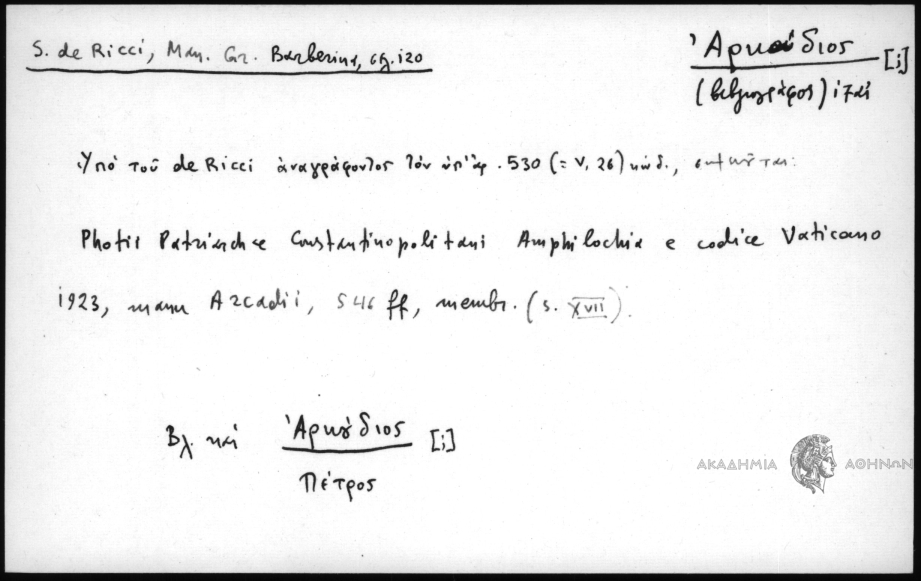 S. de Ricci, Man. Gr. Barberin, σελ. 120
Ἀρκάδιος [;]
(βιβλιογράφος) ιζ αἰ
Ὑπὸ τοῦ de Ricci ἀναγράφοντος τὸν ὑπ' ἀρ. 530 (= V, 26) κώδ.,
Photii Patriarchae Constantinopolitani Amphilochia e codice Vaticano
1923, manu Arcadii, 546 ff, membr. (s. XVII).
Βλ. καὶ Ἀρκούδιος [;]
Πέτρος
ΑΚΑΔΗΜΙΑ ΑΘΗΝΩΝ